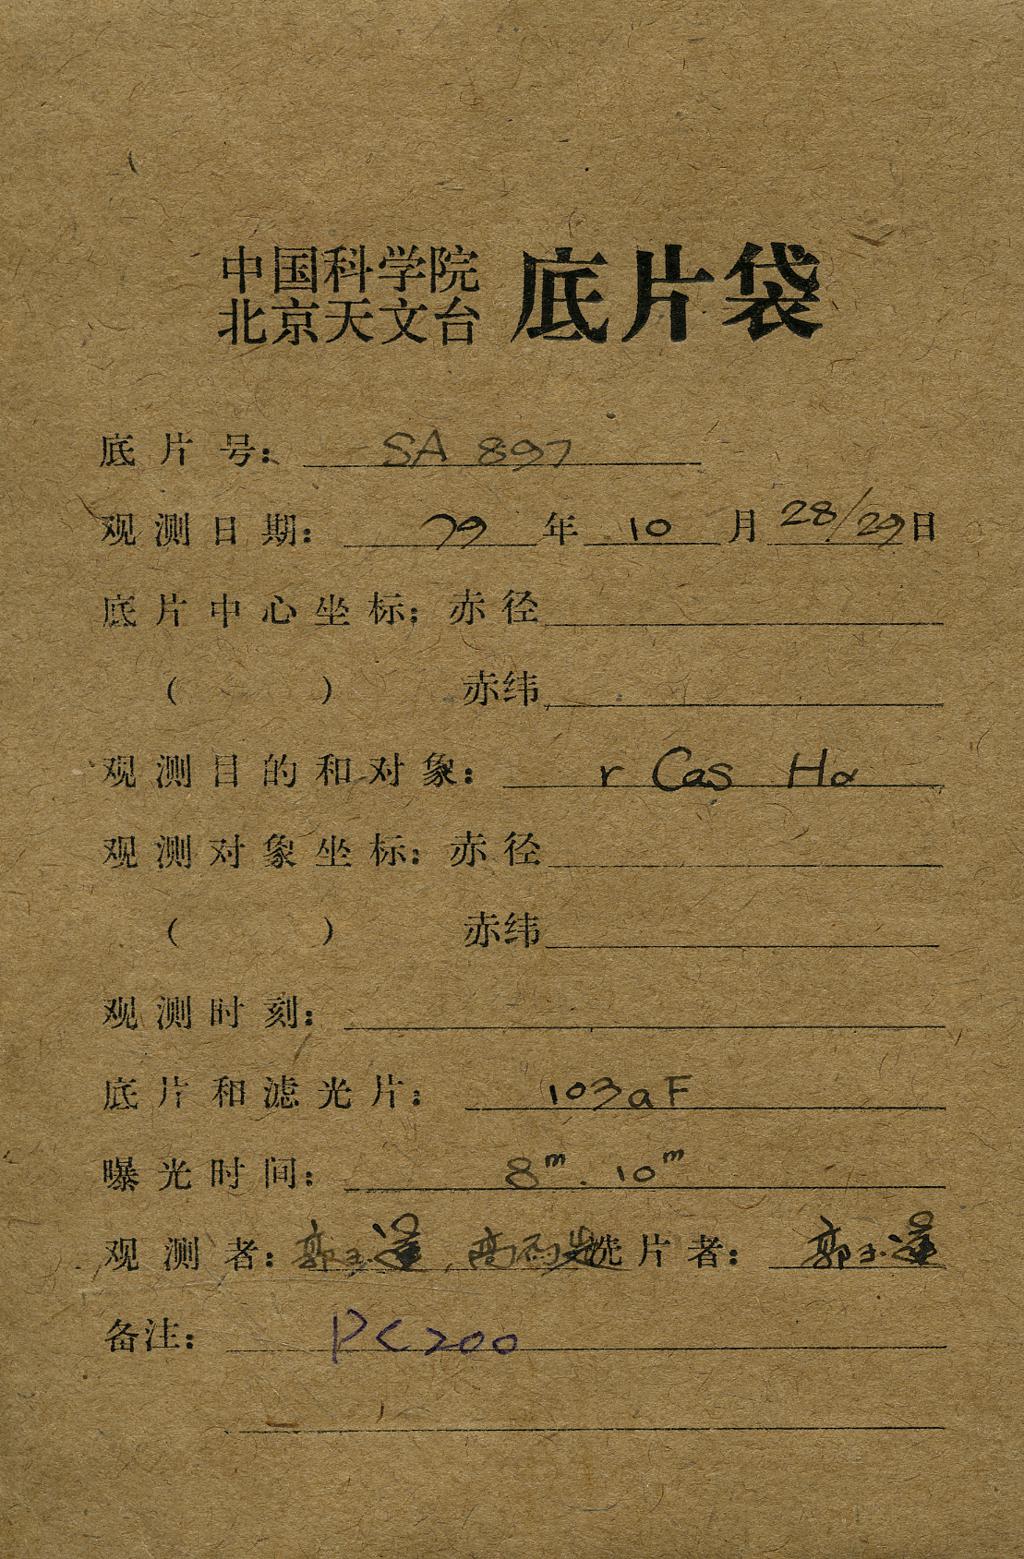 中国科学院
北京天文台 底片袋
底片号: SA 897
观测日期: 79 年 10 月 28/29 日
底片中心坐标: 赤径
( ) 赤纬
观测目的和对象: r Cas Hα
观测对象坐标: 赤径
( ) 赤纬
观测时刻:
底片和滤光片: 103aF
曝光时间: 8m. 10m
观测者: 郭玉莲, 洗片者: 郭玉莲
备注: PC200